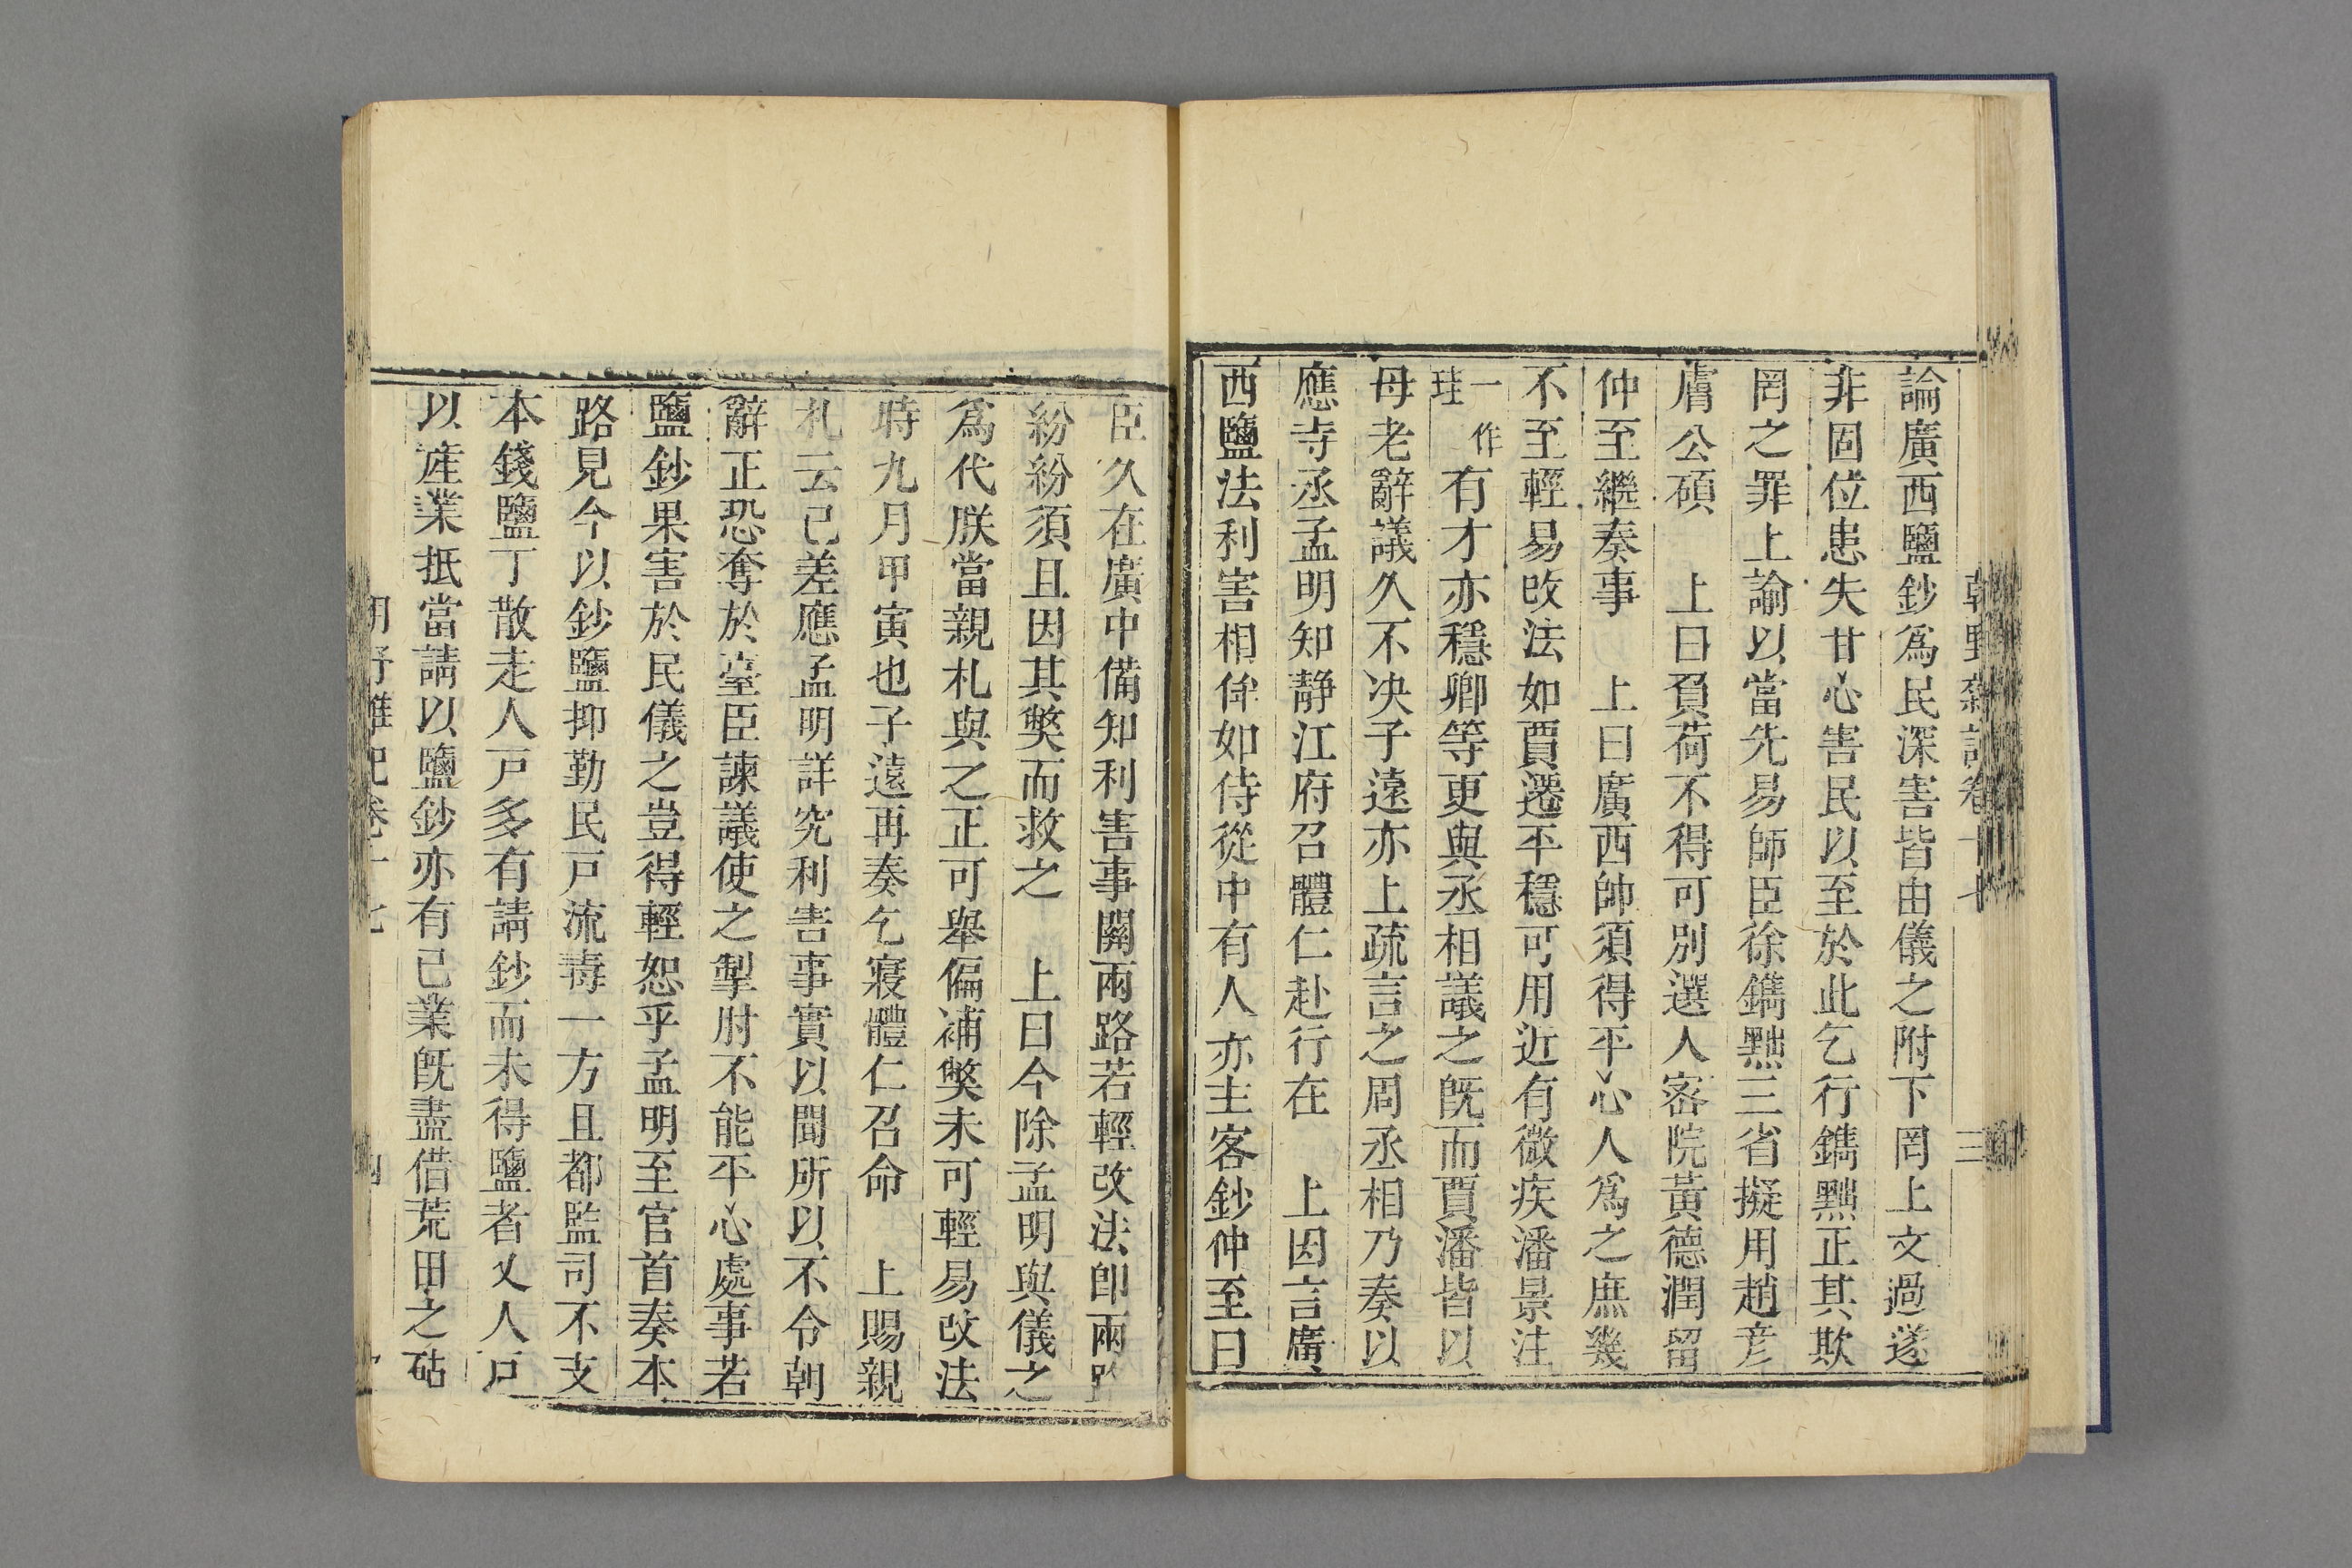 朝野雜記卷十七 三
論廣西鹽鈔爲民深害皆由儀之附下罔上文過遂
非固位患失甘心害民以至於此乞行鐫黜正其欺
罔之罪上諭以當先易師臣徐鐫黜三省擬用趙彦
膚公碩 上曰負荷不得可別選人密院黃德潤留
仲至繼奏事 上曰廣西帥須得平心人爲之庶幾
不至輕易改法如賈遷平穩可用近有微疾潘景注
一作珪有才亦穩卿等更與丞相議之既而賈潘皆以
母老辭議久不決子遠亦上疏言之周丞相乃奏以
應寺丞孟明知靜江府召體仁赴行在 上因言廣
西鹽法利害相伴如侍從中有人亦主客鈔仲至曰
臣久在廣中備知利害事關兩路若輕改法卽兩路
紛紛須且因其獘而救之 上曰今除孟明與儀之
爲代朕當親札與之正可舉偏補獘未可輕易改法
時九月甲寅也子遠再奏乞寢體仁召命 上賜親
札云已差應孟明詳究利害事實以聞所以不令朝
辭正恐奪於臺臣諫議使之掣肘不能平心處事若
鹽鈔果害於民儀之豈得輕恕乎孟明至官首奏本
路見今以鈔鹽抑勒民戸流毒一方且都監司不支
本錢鹽丁散走人戸多有請鈔而未得鹽者又人戸
以産業抵當請以鹽鈔亦有己業既盡借荒田之砧
朝野雜記卷十七 四